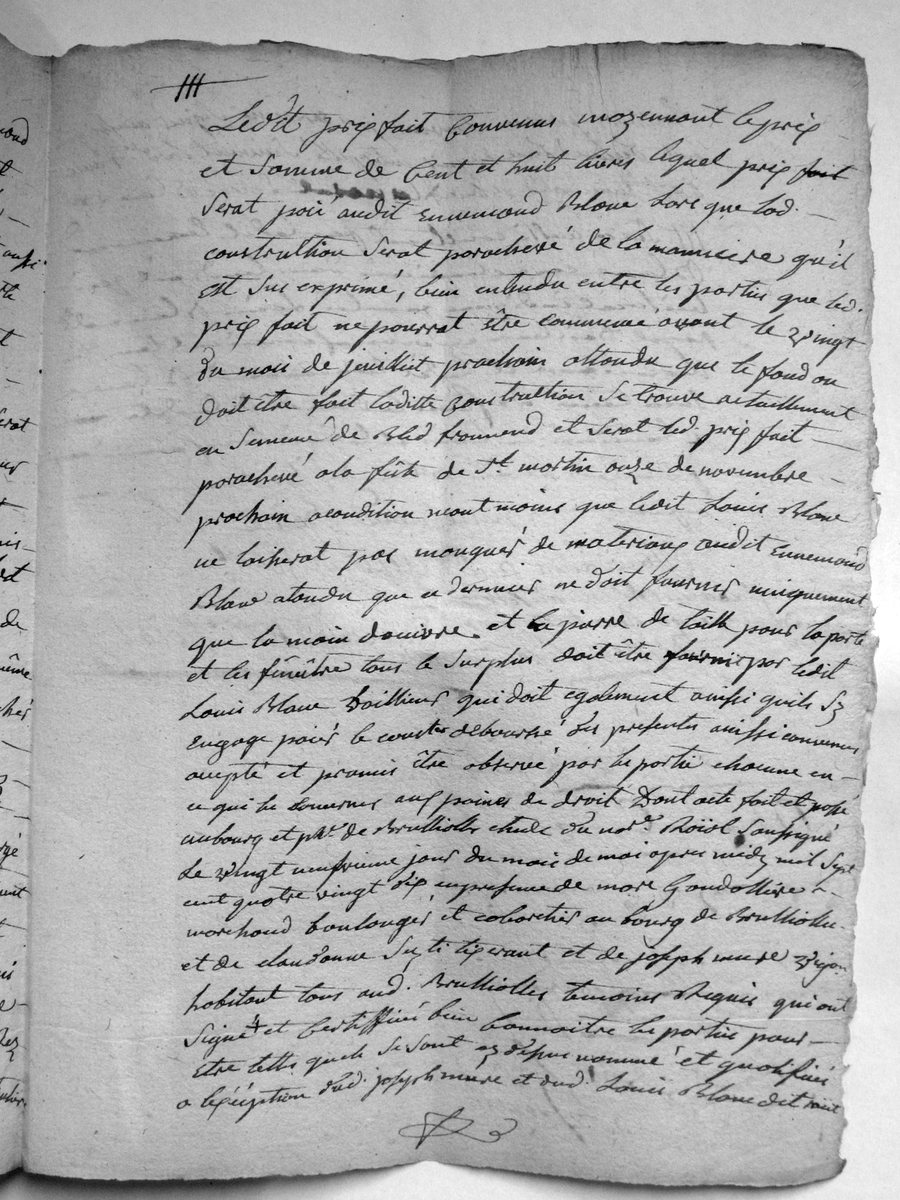 Ledit prix fait Convenus mozennant le prix
et Somme de Cent et huit livres lequel prix fait
Serat poié audit Ennemond Blanc Lors que lad.
construction Serat parachevé de la maniere qu'il
est Sus exprimé, bien entendu entre les parties que led.
prix fait ne pourrat être commencé avant le vingt
du mois de juillet prochain attendu que le fond ou
doit être fait laditte Construction Se trouve actuellement
en Semencé de Bled fromend et Serat led. prix fait
parachevé a la fête de St. martin onze de novembre
prochain acondition néant moins que ledit Louis Blanc
ne laisserat pas manquer de materiaux audit Ennemond
Blanc atendu que ce dernier ne doit fournir uniquement
que la main douivre et la pierre de taille pour la porte
et les fenêtre tous le Surplus doit être fournit par ledit
Louis Blanc qui doit egalement ainssi quils Sy
Engage poiér le débourssé des presentes ainssi convenus
acepté et promis être observé par les partie chacune en
ce qui les concernes aux paines de droit Dont acte fait et passé
aubourg et de Brulliolles etude du nore. Soussigné
Le vingt neufvieme jour du mois de mai apres midy mil Sept
cent quatre vingt dix en presence de
marchand boulonger et cabartier au bourg de Brulliolles
et de tixerant et de joseph mure
habitant tous aud. Brulliolles temoins Requis qui ont
Signé et Certiffiés bien Connoitre les parties pour
Etre telles quels Se Sont cy dessus nommé et qualifiés
a l'exception dud. joseph mure et dud. Louis Blanc dit